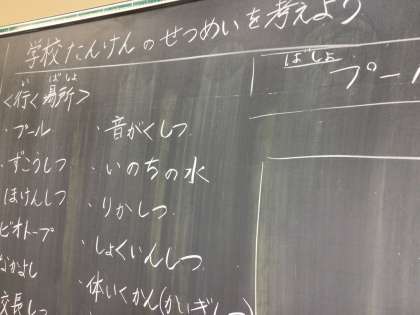 学校たんけんのせつめいを考えよう
<行く場所>
い ばしょ
・プール
・ずこうしつ
ほけんしつ
ビオトープ
なかよし
校長しつ
・音がくしつ
・いのちの水
・りかしつ
・しょくいんしつ
・体いくかん(かいぎしつ)
ばしょ
プール